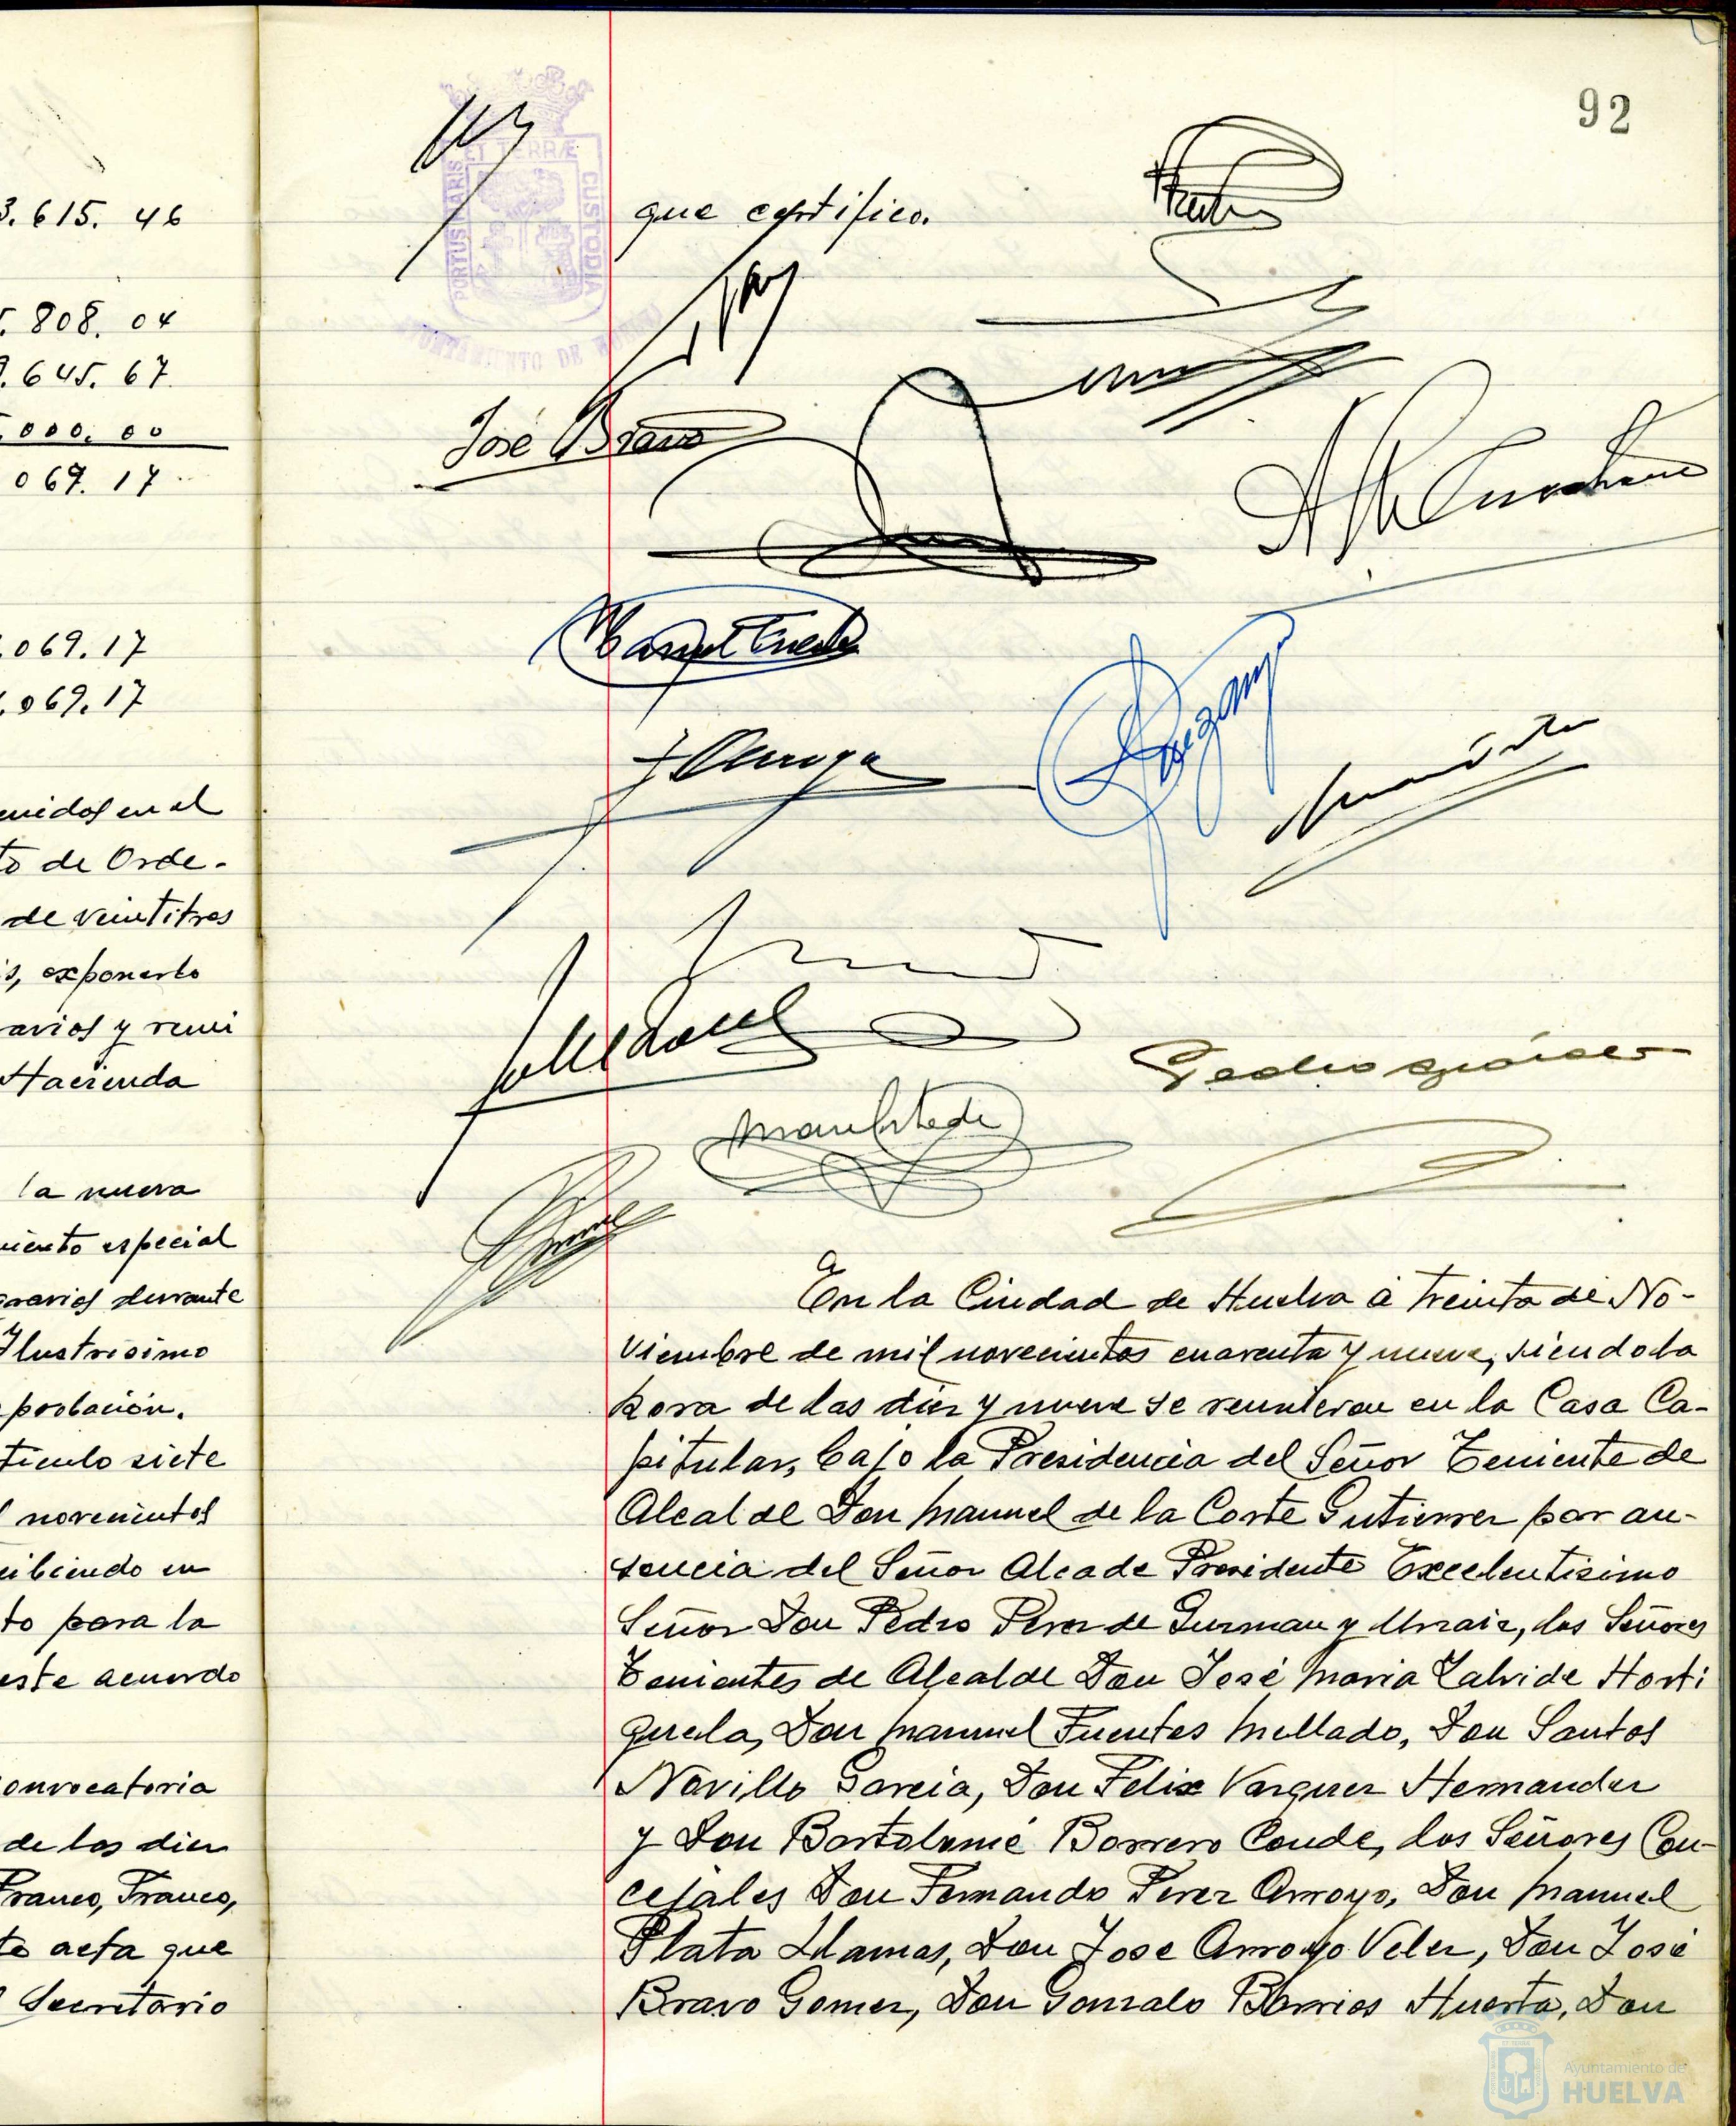 3.615.46
808.04
.645.67
000.00
069.17
.069.17
.069.17
en el
to de Orde-
de veintitres
s, exponerlo
y remi
Hacienda
la nueva
miento especial
durante
Ilustrisimo
probación.
tículo siete
novecientos
en
to para la
este acuerdo
onvocatoria
de las diez
Franco, Franco,
te acta que
Secretario
92
PORTUS MARIS ET TERRÆ CUSTODIA
AYUNTAMIENTO DE HUELVA
que certifico.
José Bravo
En la Ciudad de Huelva a treinta de No-
viembre de mil novecientos cuarenta y nueve, siendo la
hora de las diez y nueve se reunieron en la Casa Ca-
pitular, bajo la Presidencia del Señor Teniente de
Alcalde Don Manuel de la Corte Gutierrez por au-
sencia del Señor Alcade Presidente Excelentisimo
Señor Don Pedro Perez de Guzman y Urzaiz, los Señores
Tenientes de Alcalde Don José Maria Zalvide Horti
guela, Don Manuel Fuentes Mellado, Don Santos
Novillo Garcia, Don Felix Vazquez Hernandez
y Don Bartolomé Borrero Conde, los Señores Con-
cejales Don Fernando Perez Arroyo, Don Manuel
Plata Llamas, Don Jose Arroyo Velez, Don José
Bravo Gomez, Don Gonzalo Barrios Huerta, Don
Ayuntamiento de
HUELVA